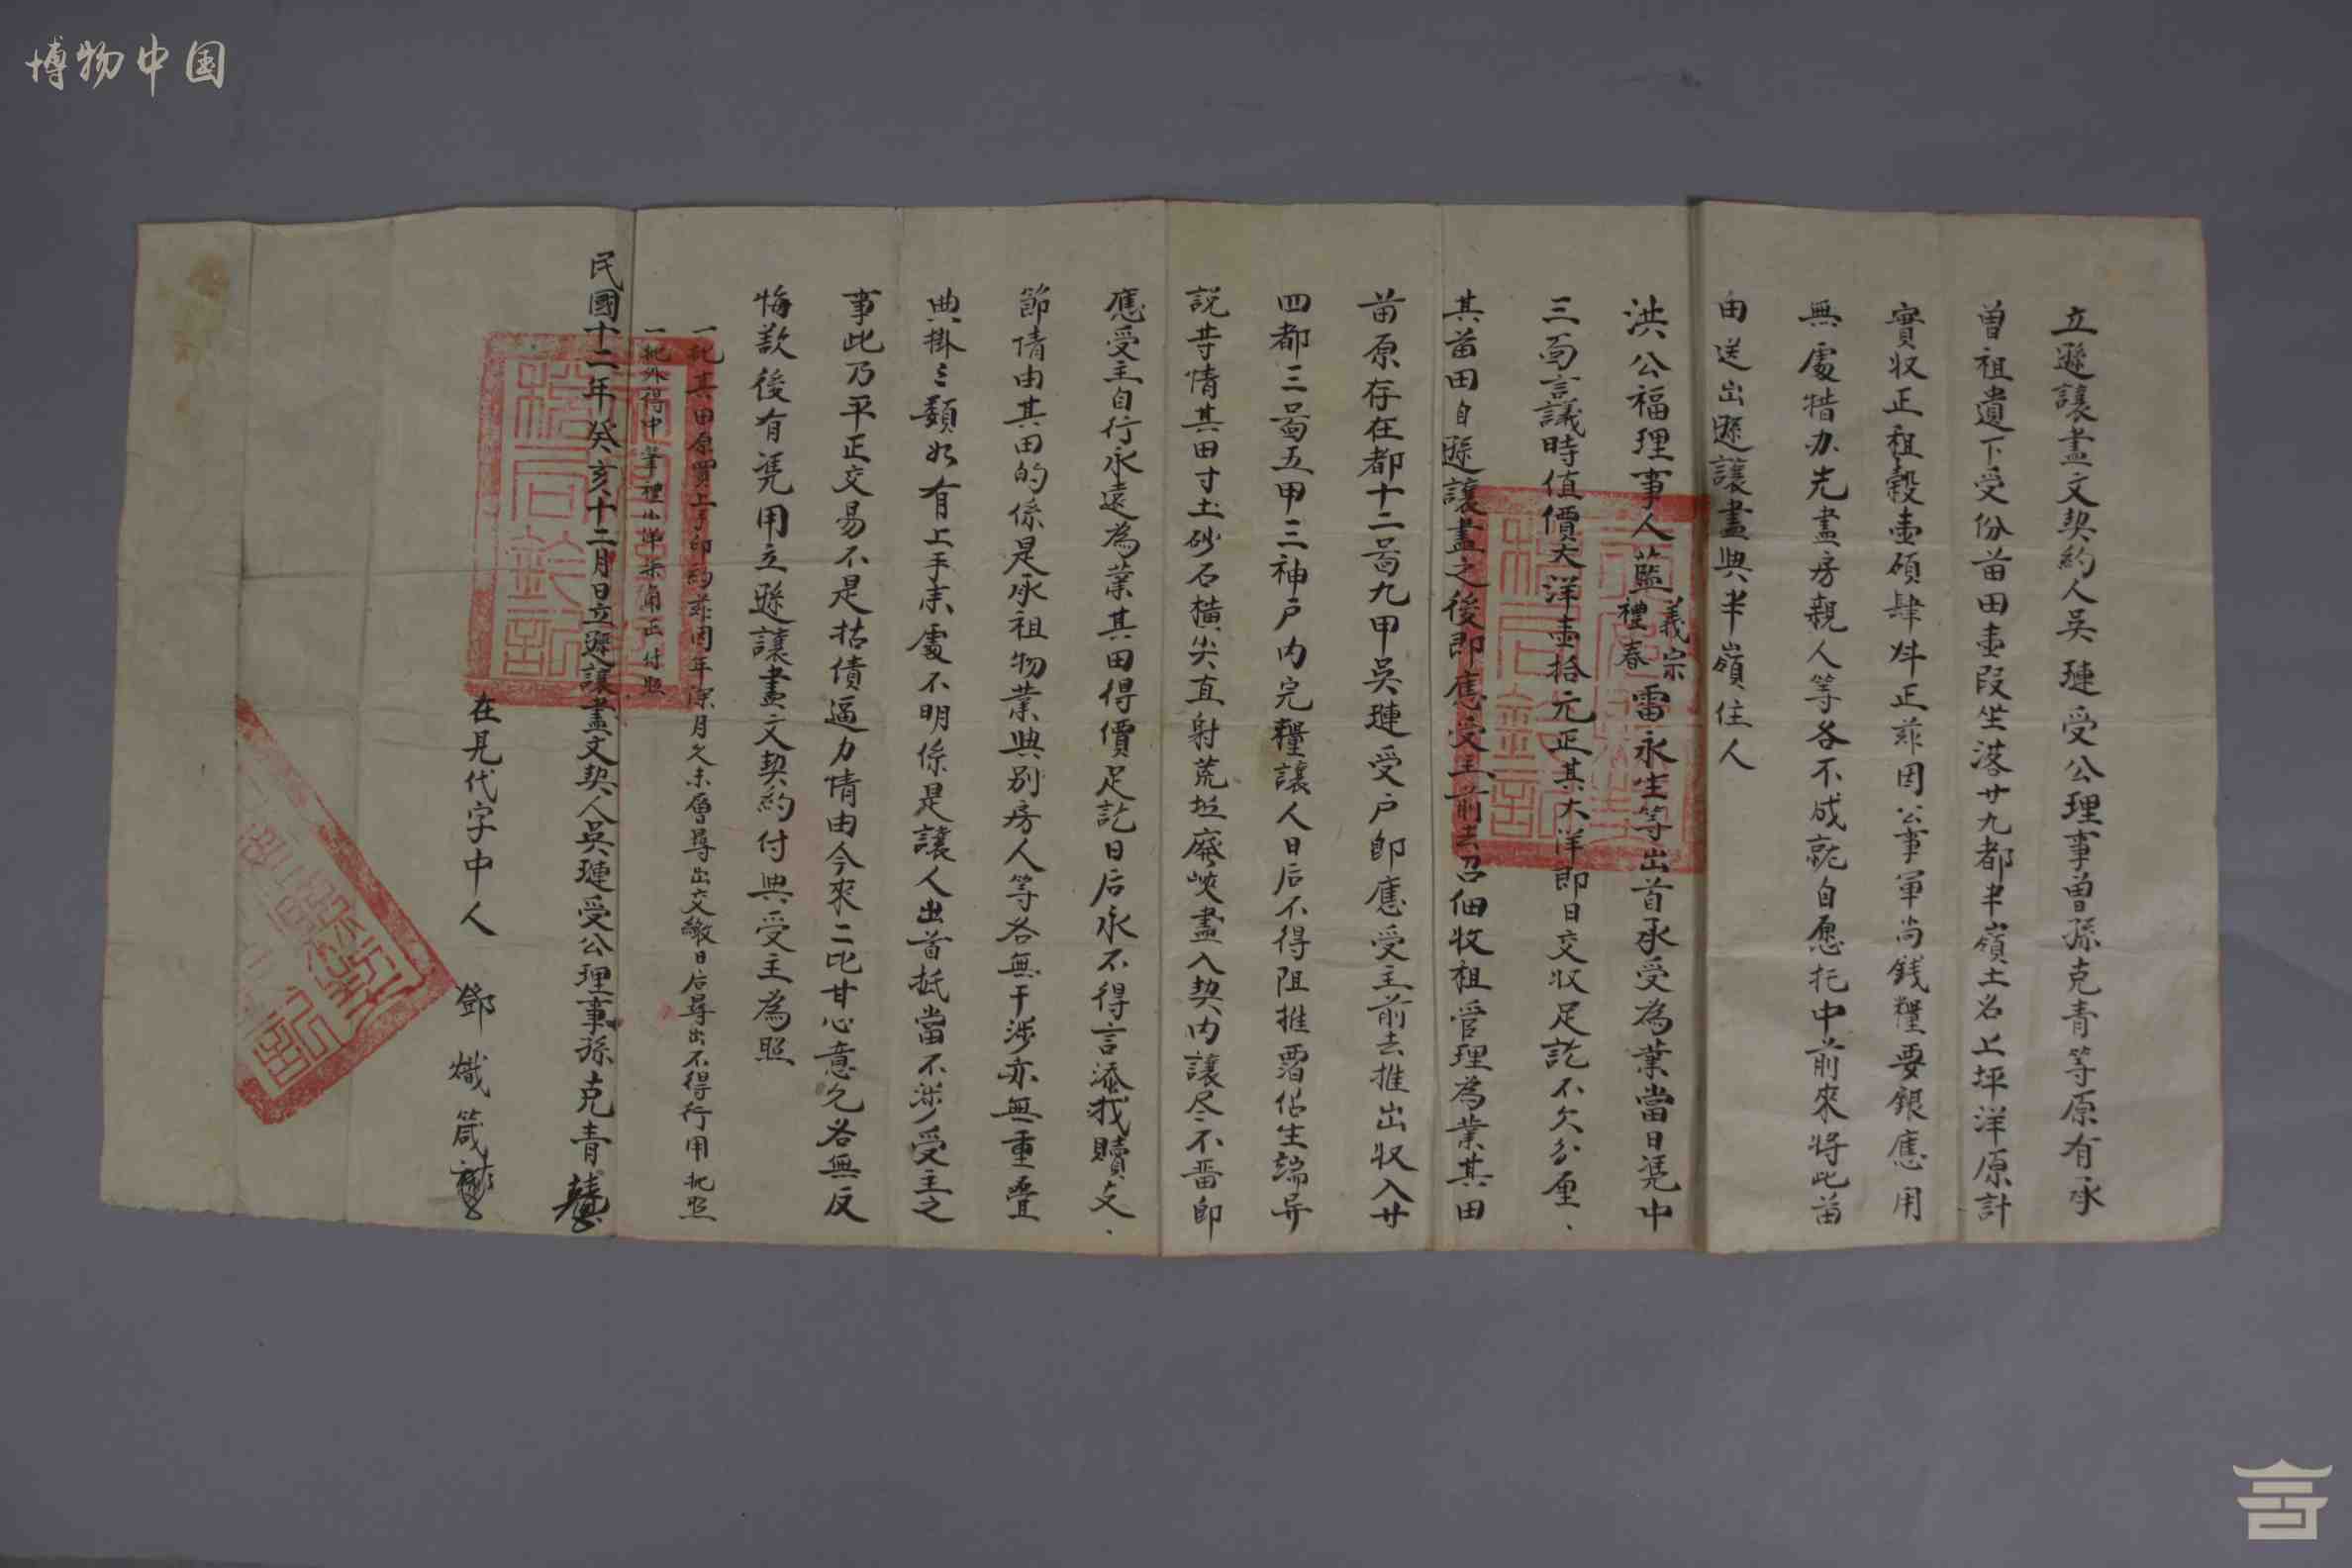 博物中国
立遜讓盡文契約人吳璉受公理事曾孫克青等原有承
曾祖遺下受份苗田壹段坐落廿九都半嶺土名上坪洋原計
實收正租穀壹碩肆斗正茲因公事單尚錢糧要銀應用
無處措办先盡房親人等各不成就自愿托中前來將此苗
田送出遜讓盡與半嶺住人
洪公福理事人藍義宗禮春雷永生等出首承受為業當日憑中
三面言議時值價大洋壹拾元正其大洋即日交收足訖不欠分厘、
其苗田自遜讓盡之後即應受主前去召佃收租管理為業其田
苗原存在都十二啚九甲吳璉受户即應受主前去推出收入廿
四都三啚五甲三神户内完糧讓人日后不得阻推覇佔生端异
説䓁情其田寸土砂石横尖直射荒坵廢峽盡入契内讓尽不畱即
應受主自行永遠為業其田得價足訖日后永不得言添找贖交、
節情由其田的係是承祖物業與别房人等各無干涉亦無重叠
典掛之類如有上手来處不明係是讓人出首抵當不涉受主之
事此乃平正交易不是拈債逼力情由今來二比甘心意允各無反
悔欵後有凭用立遜讓盡文契約付與受主為照
一批其田原買上手印約茲因年深月久未曾尋出交繳日后尋出不得行用批照
一批外得中筆禮小洋柒角正付照
民國十二年癸亥十二月日立遜讓盡文契人吳璉受公理事孫克青
在見代字中人 鄧熾箴